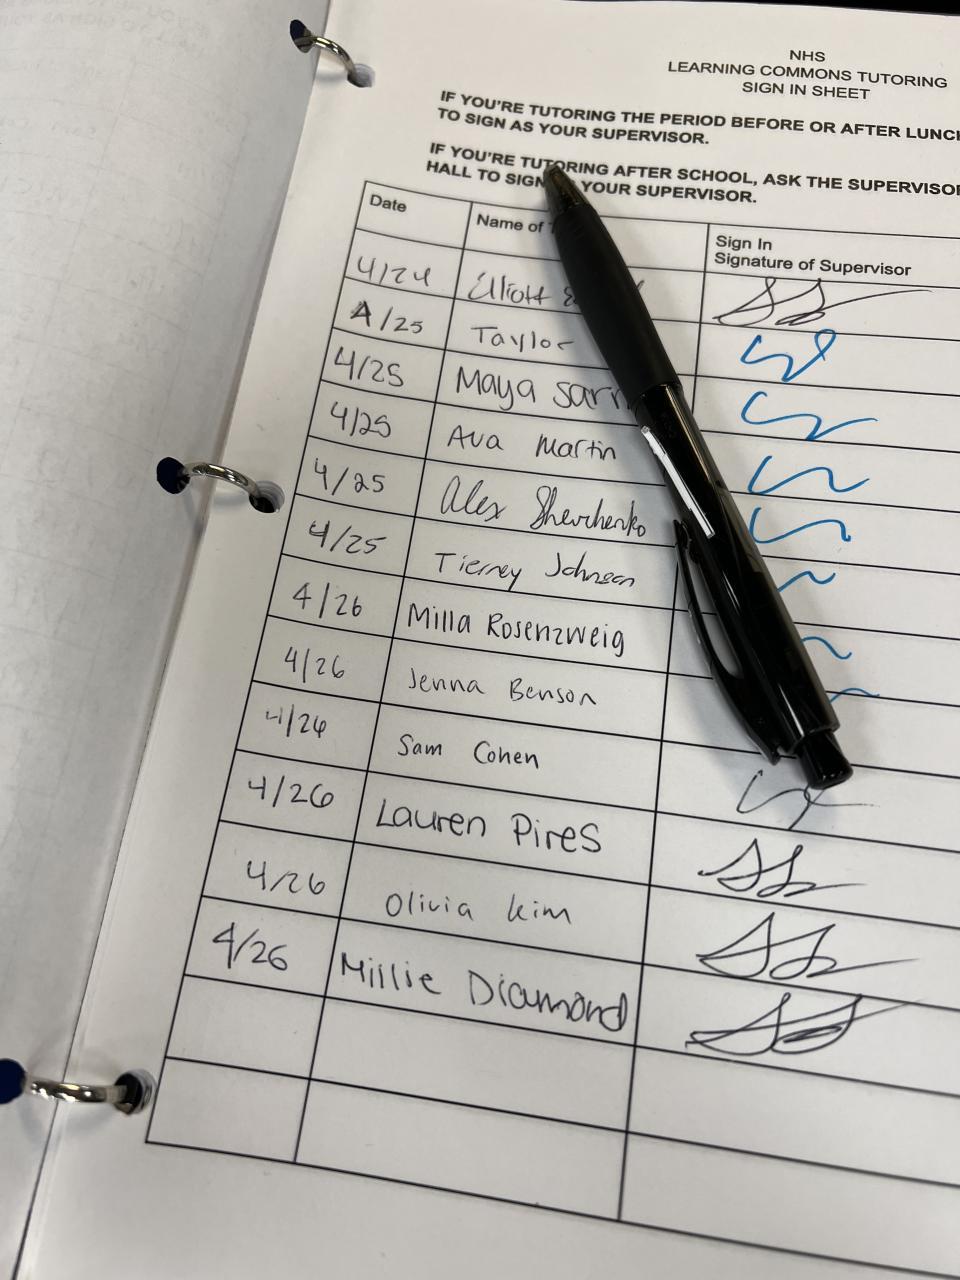 NHS
LEARNING COMMONS TUTORING
SIGN IN SHEET
IF YOU'RE TUTORING THE PERIOD BEFORE OR AFTER LUNCH
TO SIGN AS YOUR SUPERVISOR.
IF YOU'RE TUTORING AFTER SCHOOL, ASK THE SUPERVISOR
HALL TO SIGN YOUR SUPERVISOR.
Date Name of Sign In
Signature of Supervisor
4/24 Elliott
4/25 Taylor
4/25 Maya
4/25 Ava Martin
4/25 Alex Shevchenko
4/25 Tierney Johnson
4/26 Milla Rosenzweig
4/26 Jenna Benson
4/26 Sam Cohen
4/26 Lauren Pires
4/26 Olivia Kim
4/26 Millie Diamond